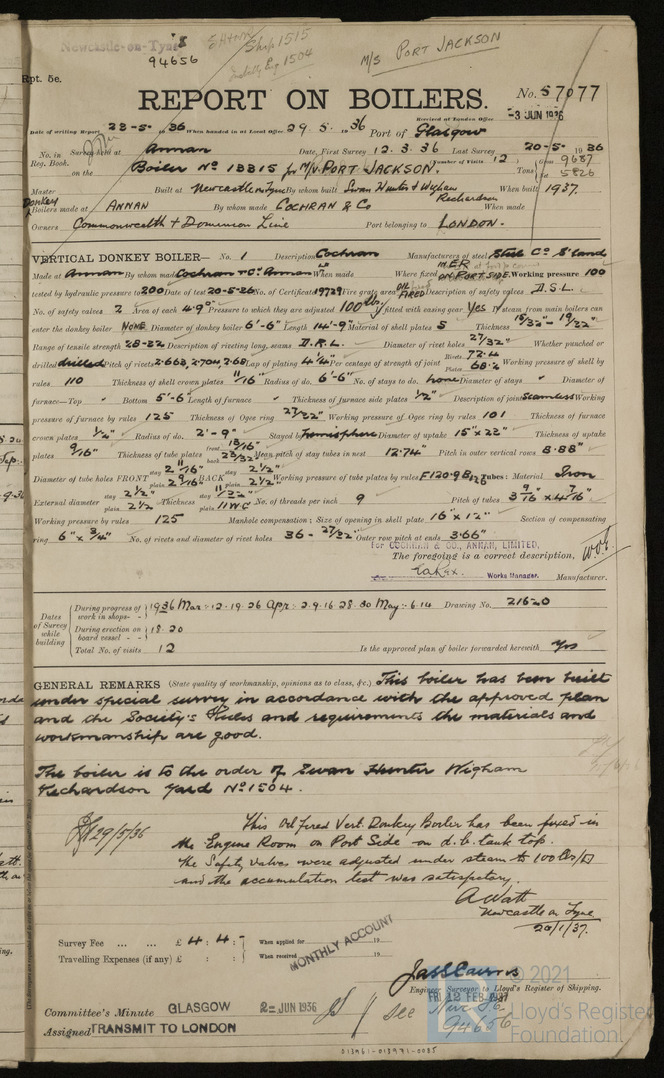 Newcastle-on-Tyne
94656
Ship 1515
Eng 1504
M/S PORT JACKSON
Rpt. 5c.
REPORT ON BOILERS.
No. 57077
Received at London Office
-3 JUN 1936
Date of writing Report 28-5- 1936 When handed in at Local Office 29.5.1936 Port of Glasgow
No. in Survey held at Annan Date, First Survey 12.3.36 Last Survey 20-5- 1936
Reg. Book. (Number of Visits 12)
on the Boiler No 13315 for M/V. PORT JACKSON. Tons Gross 9687
Net 5826
Master Built at Newcastle on Tyne By whom built Swan Hunter & Wigham Richardson When built 1937.
Donkey Boilers made at ANNAN By whom made COCHRAN & Co When made
Owners Commonwealth & Dominion Line Port belonging to LONDON.
VERTICAL DONKEY BOILER— No. 1 Description Cochran Manufacturers of steel Steel Co S'land
Made at Annan By whom made Cochran & Co Annan Ltd When made Where fixed IN E.R. ON PORT SIDE. Working pressure 100
tested by hydraulic pressure to 200 Date of test 20-5-26 No. of Certificate 19729 Fire grate area OIL FIRED Description of safety valves D.S.L.
No. of safety valves 2 Area of each 4.9" Pressure to which they are adjusted 100 lbs If fitted with easing gear Yes If steam from main boilers can
enter the donkey boiler NONE Diameter of donkey boiler 6'-6" Length 14'-9" Material of shell plates S Thickness 15/32" - 19/32"
Range of tensile strength 28-32 Description of riveting long. seams D.R.L. Diameter of rivet holes 27/32" Whether punched or
drilled drilled Pitch of rivets 2.663, 2.704, 2.68 Lap of plating 4 1/4" Per centage of strength of joint Rivets 72.4 Plates 68.2 Working pressure of shell by
rules 110 Thickness of shell crown plates 11/16" Radius of do. 6'-6" No. of stays to do. none Diameter of stays " Diameter of
furnace—Top " Bottom 5'-6" Length of furnace " Thickness of furnace side plates 1/2" Description of joint Seamless Working
pressure of furnace by rules 125 Thickness of Ogee ring 27/32" Working pressure of Ogee ring by rules 101 Thickness of furnace
crown plates 1/2" Radius of do. 2'-9" Stayed by hemisphere Diameter of uptake 15"x22" Thickness of uptake
plates 9/16" Thickness of tube plates front 13/16" back 23/32" Mean pitch of stay tubes in nest 12.74" Pitch in outer vertical rows 8.88"
Diameter of tube holes FRONT stay 2 11/16" plain 2 9/16" BACK stay 2 1/2" plain 2 1/2" Working pressure of tube plates by rules F120.9 B126 Tubes: Material Iron
External diameter stay 2 1/2" plain 2 1/2" Thickness stay 11/32" plain 11 WG No. of threads per inch 9 Pitch of tubes 3 9/16" x 4 7/16"
Working pressure by rules 125 Manhole compensation: Size of opening in shell plate 16"x12" Section of compensating
ring 6"x 3/4" No. of rivets and diameter of rivet holes 36 - 27/32" Outer row pitch at ends 3.66"
For COCHRAN & CO., ANNAN, LIMITED.
The foregoing is a correct description,
Works Manager. Manufacturer.
Dates of Survey while building
During progress of work in shops - - 1936 Mar: 12.19.26 Apr: 2.9.16 28.30 May: 6.14 Drawing No. 21620
During erection on board vessel - - 18.20
Total No. of visits 12 Is the approved plan of boiler forwarded herewith Yes
GENERAL REMARKS (State quality of workmanship, opinions as to class, &c.) This boiler has been built
under special survey in accordance with the approved plan
and the Society's Rules and requirements the materials and
workmanship are good.
The boiler is to the order of Swan Hunter Wigham
Richardson Yard No 1504.
29/5/36
This Oil fired Vert. Donkey Boiler has been fixed in
the Engine Room on Port Side on d.b. tank top.
The Safety Valves were adjusted under steam to 100 lbs/□"
and the accumulation test was satisfactory.
A Watt
Newcastle on Tyne
20/1/37.
Survey Fee ... ... £ 4 : 4 : - When applied for 19
Travelling Expenses (if any) £ : : When received 19
MONTHLY ACCOUNT
Jas S Cairns
Engineer Surveyor to Lloyd's Register of Shipping.
FRI 12 FEB 1937
Committee's Minute GLASGOW 2- JUN 1936
see Nwc Rpt 94656
Assigned TRANSMIT TO LONDON
© 2021
Lloyd's Register
Foundation
013961-013971-0035